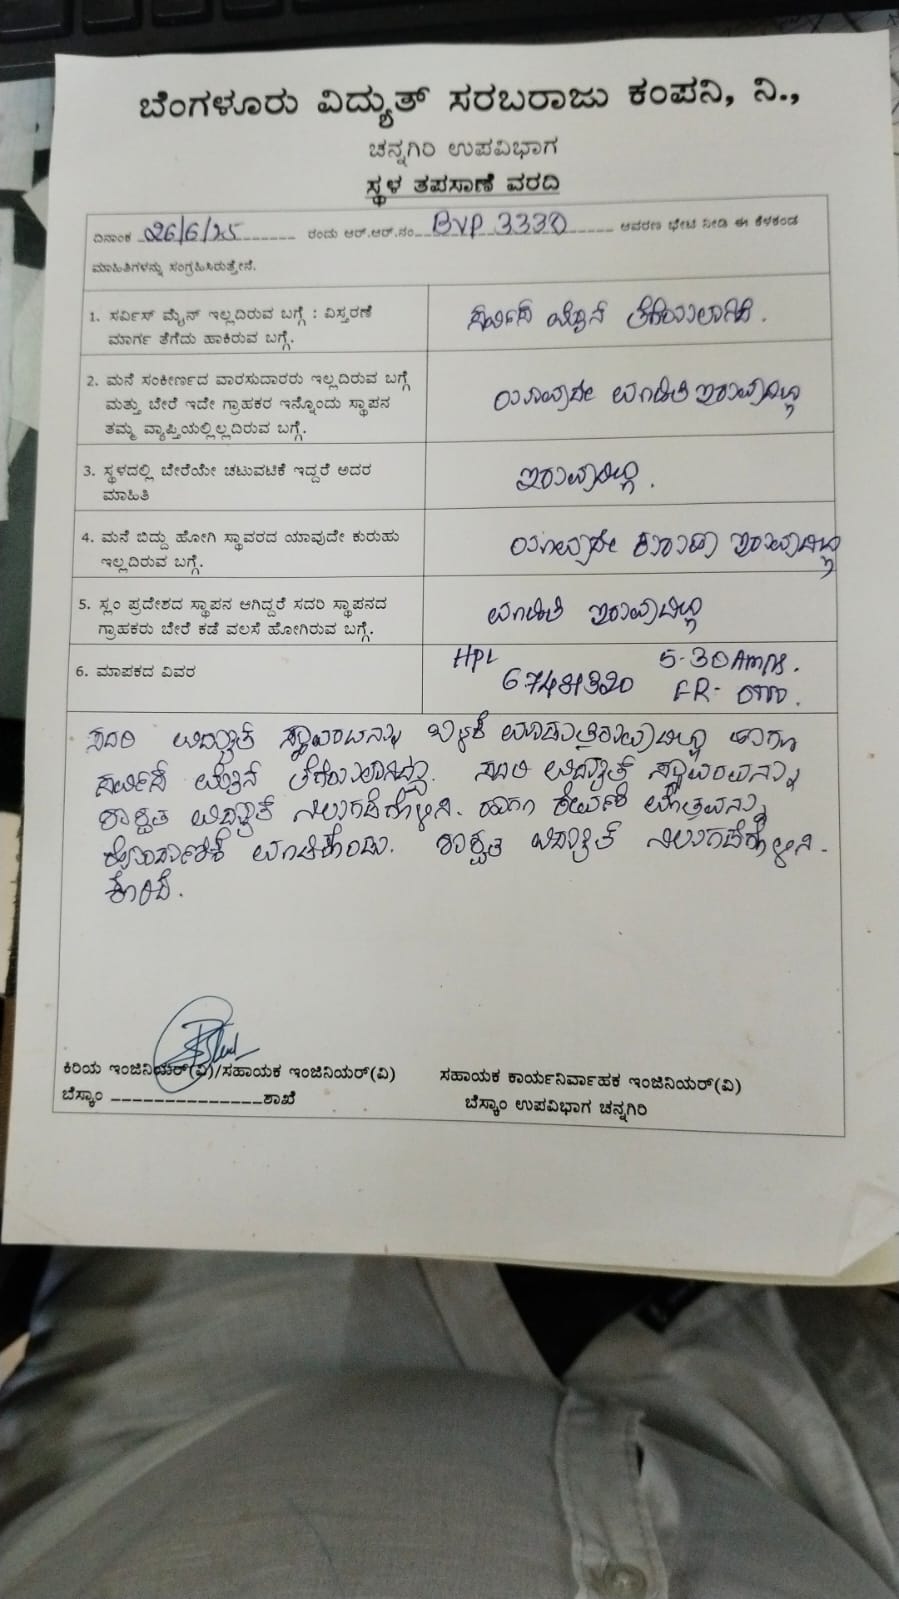 ಬೆಂಗಳೂರು ವಿದ್ಯುತ್ ಸರಬರಾಜು ಕಂಪನಿ, ನಿ.,
ಚನ್ನಗಿರಿ ಉಪವಿಭಾಗ
ಸ್ಥಳ ತಪಸಾಣೆ ವರದಿ
ದಿನಾಂಕ 26/6/25 ರಂದು ಆರ್.ಆರ್.ನಂ. BVP 3330 ಆವರಣ ಭೇಟಿ ನೀಡಿ ಈ ಕೆಳಕಂಡ
ಮಾಹಿತಿಗಳನ್ನು ಸಂಗ್ರಹಿಸಿರುತ್ತೇನೆ.
1. ಸರ್ವಿಸ್ ಮೈನ್ ಇಲ್ಲದಿರುವ ಬಗ್ಗೆ : ವಿಸ್ತರಣೆ
ಮಾರ್ಗ ತೆಗೆದು ಹಾಕಿರುವ ಬಗ್ಗೆ.
ಸರ್ವಿಸ್ ಮೈನ್ ತೆಗೆಯಲಾಗಿದೆ.
2. ಮನೆ ಸಂಕೀರ್ಣದ ವಾರಸುದಾರರು ಇಲ್ಲದಿರುವ ಬಗ್ಗೆ
ಮತ್ತು ಬೇರೆ ಇದೇ ಗ್ರಾಹಕರ ಇನ್ನೊಂದು ಸ್ಥಾಪನ
ತಮ್ಮ ವ್ಯಾಪ್ತಿಯಲ್ಲಿಲ್ಲದಿರುವ ಬಗ್ಗೆ.
ಯಾವುದೇ ಮಾಹಿತಿ ಇರುವುದಿಲ್ಲ
3. ಸ್ಥಳದಲ್ಲಿ ಬೇರೆಯೇ ಚಟುವಟಿಕೆ ಇದ್ದರೆ ಅದರ
ಮಾಹಿತಿ
ಇರುವುದಿಲ್ಲ.
4. ಮನೆ ಬಿದ್ದು ಹೋಗಿ ಸ್ಥಾವರದ ಯಾವುದೇ ಕುರುಹು
ಇಲ್ಲದಿರುವ ಬಗ್ಗೆ.
ಯಾವುದೇ ಕುರುಹು ಇರುವುದಿಲ್ಲ
5. ಸ್ಲಂ ಪ್ರದೇಶದ ಸ್ಥಾಪನ ಆಗಿದ್ದರೆ ಸದರಿ ಸ್ಥಾಪನದ
ಗ್ರಾಹಕರು ಬೇರೆ ಕಡೆ ವಲಸೆ ಹೋಗಿರುವ ಬಗ್ಗೆ.
ಮಾಹಿತಿ ಇರುವುದಿಲ್ಲ
6. ಮಾಪಕದ ವಿವರ
HPL 5-30 Amps.
FR-
ಸದರಿ ವಿದ್ಯುತ್ ಸ್ಥಾವರವನ್ನು ಬಳಕೆ ಮಾಡುತ್ತಿರುವುದಿಲ್ಲ ಹಾಗೂ
ಸರ್ವಿಸ್ ಮೈನ್ ತೆಗೆಯಲಾಗಿದ್ದು. ಸದರಿ ವಿದ್ಯುತ್ ಸ್ಥಾವರವನ್ನು
ಶಾಶ್ವತ ವಿದ್ಯುತ್ ನಿಲುಗಡೆಗೊಳಿಸಿ. ಹಾಗೂ ಠೇವಣಿ ಮೊತ್ತವನ್ನು
ಹೊಂದಾಣಿಕೆ ಮಾಡಿಕೊಂಡು. ಶಾಶ್ವತ ವಿದ್ಯುತ್ ನಿಲುಗಡೆಗೊಳಿಸಿ.
ಕೋರಿದೆ.
ಕಿರಿಯ ಇಂಜಿನಿಯರ್(ವಿ)/ಸಹಾಯಕ ಇಂಜಿನಿಯರ್(ವಿ)
ಬೆಸ್ಕಾಂ ______________ಶಾಖೆ
ಸಹಾಯಕ ಕಾರ್ಯನಿರ್ವಾಹಕ ಇಂಜಿನಿಯರ್(ವಿ)
ಬೆಸ್ಕಾಂ ಉಪವಿಭಾಗ ಚನ್ನಗಿರಿ